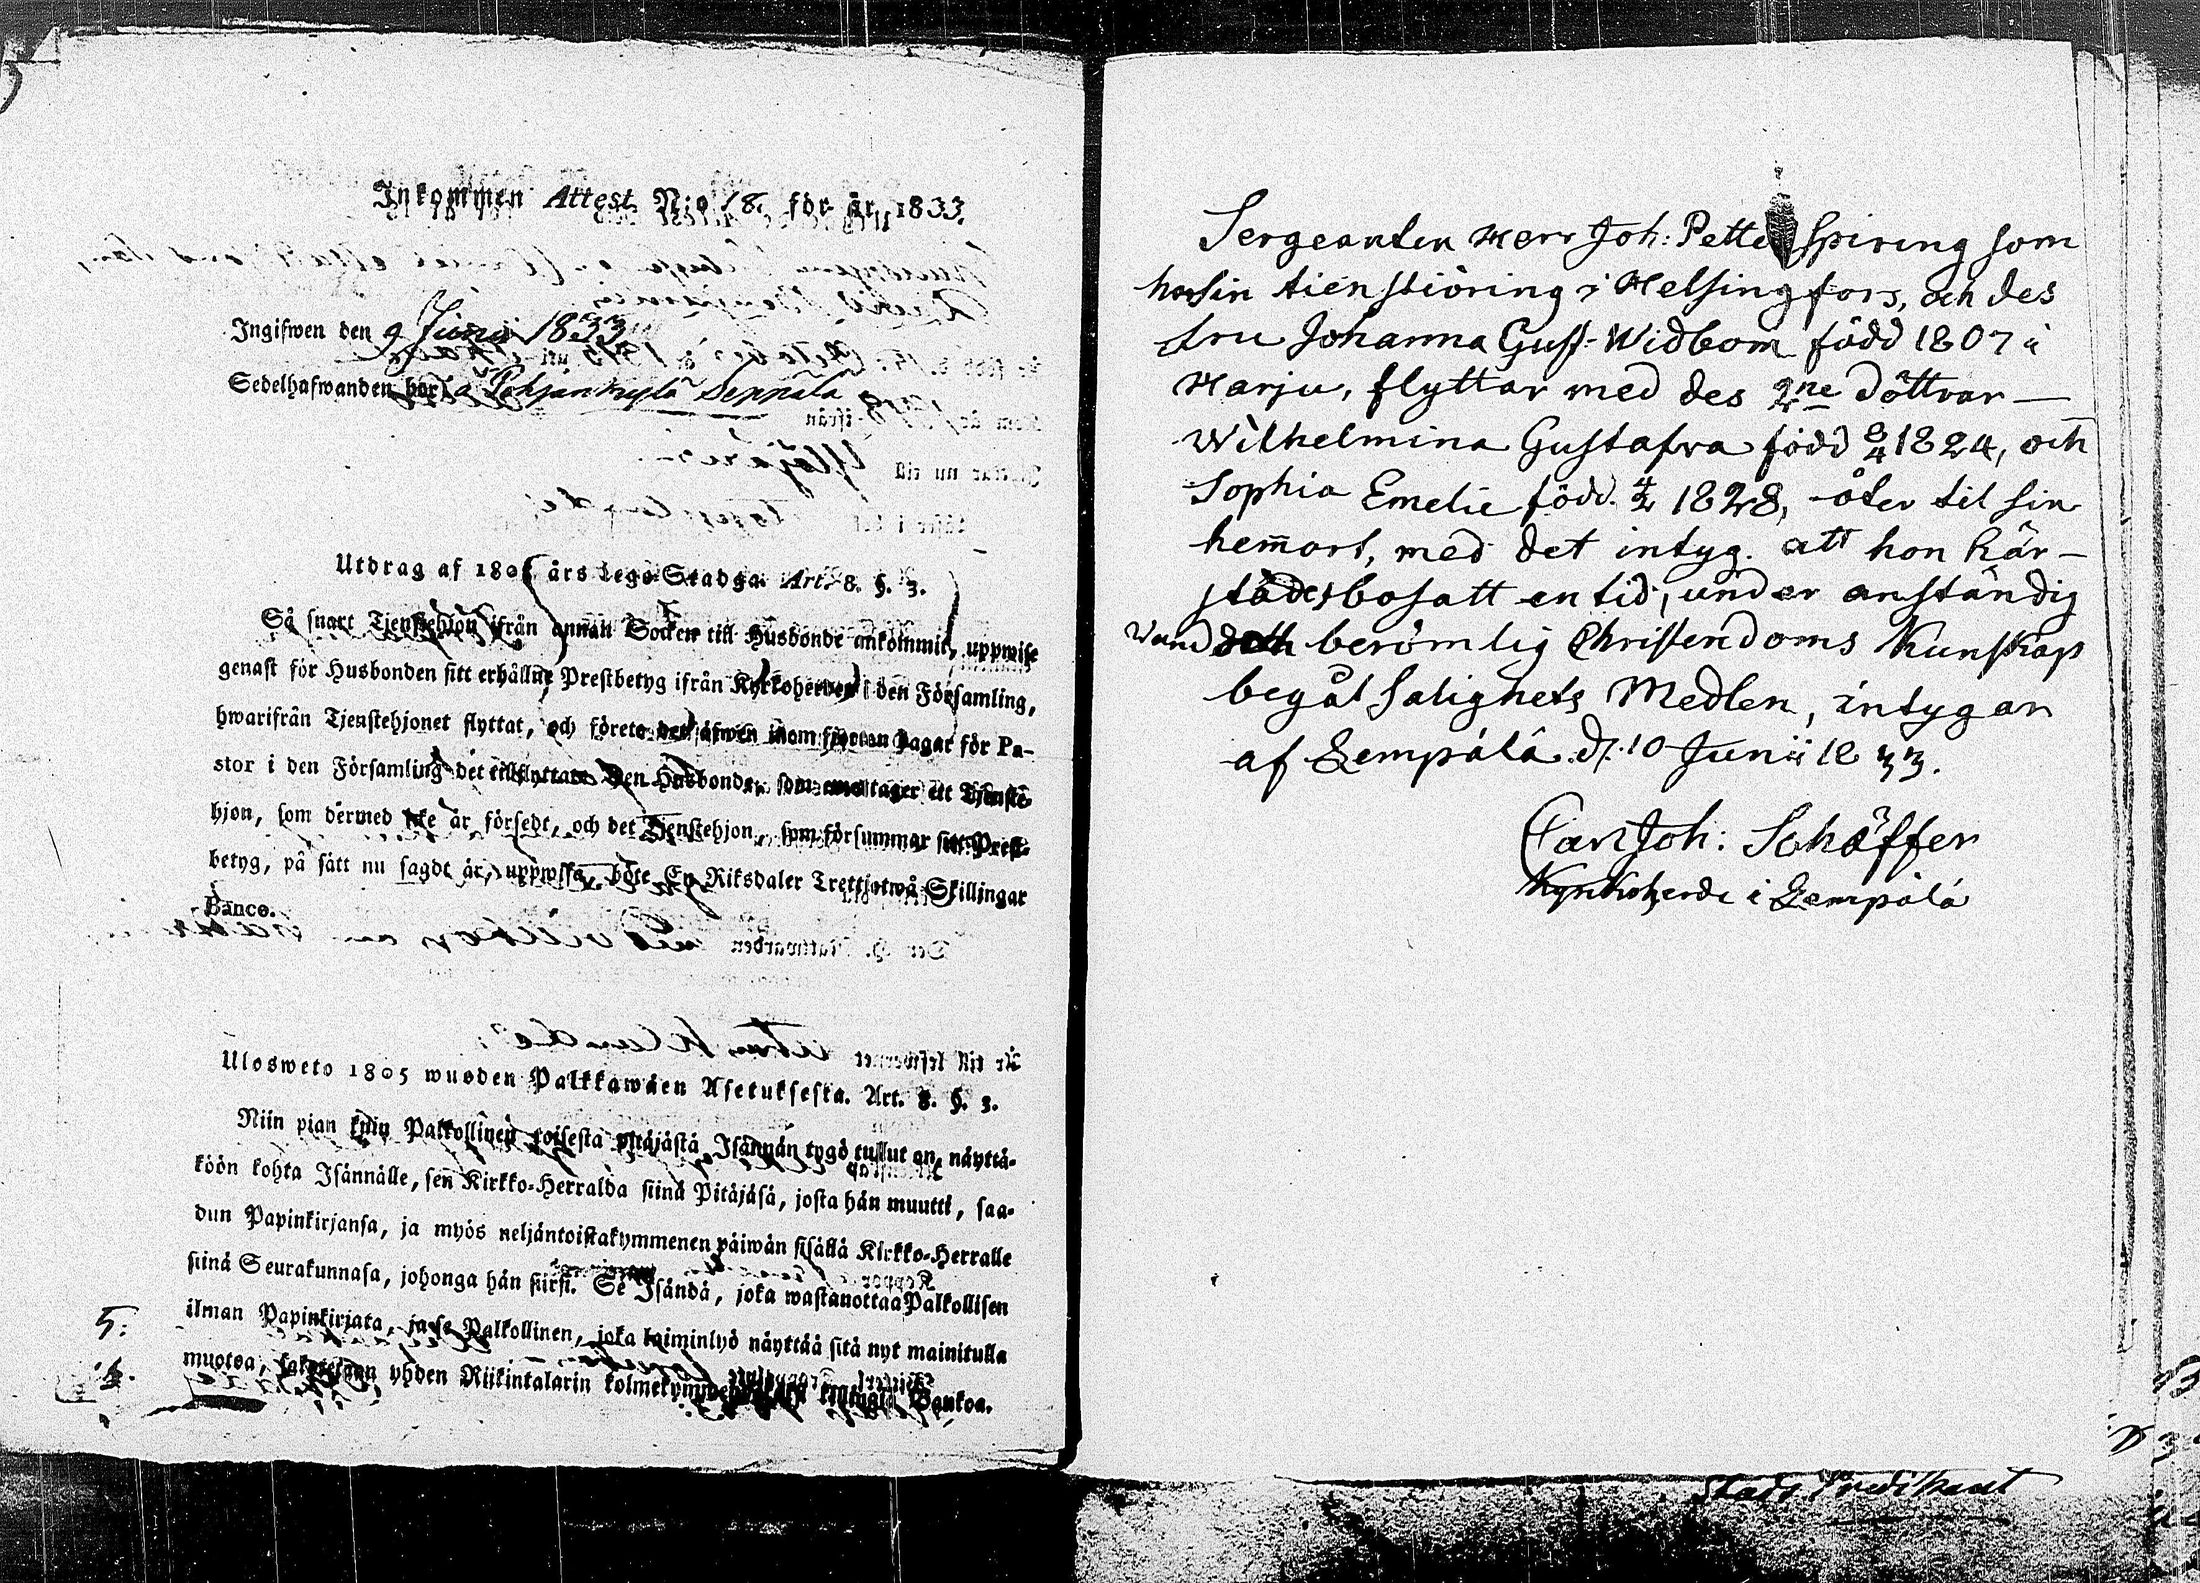 Inkommen Attest N:o 18. för år 1833.
Ingifwen den 9 Junii 1833
Sedelhafwanden bor i Pohjankylä Seppälä
Utdrag af 1805 års Lego-Stadga. Art. 8. §. 3.
Så snart Tjenstehjon ifrån annan Socken till Husbonde ankommit, uppwise
genast för Husbonden sitt erhållne Prestbetyg ifrån Kyrkoherden i den Församling,
hwarifrån Tjenstehjonet flyttat, och förete det äfwen inom fjorton dagar för Pa-
stor i den Församling det tillflyttat. Den Husbonde, som emottager ett Tjenste-
hjon, som dermed icke är försedt, och det Tjenstehjon, som försummar sitt Prest-
betyg, på sätt nu sagdt är, uppwisa, böte En Riksdaler Trettiotwå Skillingar
Banco.
Ulosweto 1805 wuoden Palkkawäen Asetuksesta. Art. 8. §. 3.
Niin pian kuin Palkollinen toisesta pitäjästä Isännän tygö tullut on, näyttä-
köön kohta Isännälle, sen Kirkko-Herralda siinä Pitäjäsä, josta hän muutti, saa-
dun Papinkirjansa, ja myös neljäntoistakymmenen päiwän sisällä Kirkko-Herralle
siinä Seurakunnasa, johonga hän siirsi. Se Isändä, joka wastanottaa Palkollisen
ilman Papinkirjata, ja se Palkollinen, joka laiminlyö näyttää sitä nyt mainitulla
muotoa, sakotetaan yhden Riikintalarin kolmekymmendä kaksi killingiä Bankoa.
5.
Sergeanten Herr Joh: Petter Spiring som
har sin tienstiöring i Helsingfors, och des
fru Johanna Gust. Widbom född 1807 i
Harju, flyttar med des 2ne döttrar —
Wilhelmina Gustafva född 8/4 1824, och
Sophia Emelie född 4/2 1828, åter til sin
hemort, med det intyg. att hon här-
städes bosatt en tid, under anständig
vand och berömlig Christendoms Kunskap
begåt Salighets Medlen, intygar
af Lempälä. d. 10 Junii 1833.
Carl Joh: Schäffer
Kyrkoherde i Lempälä
Stads Predikant